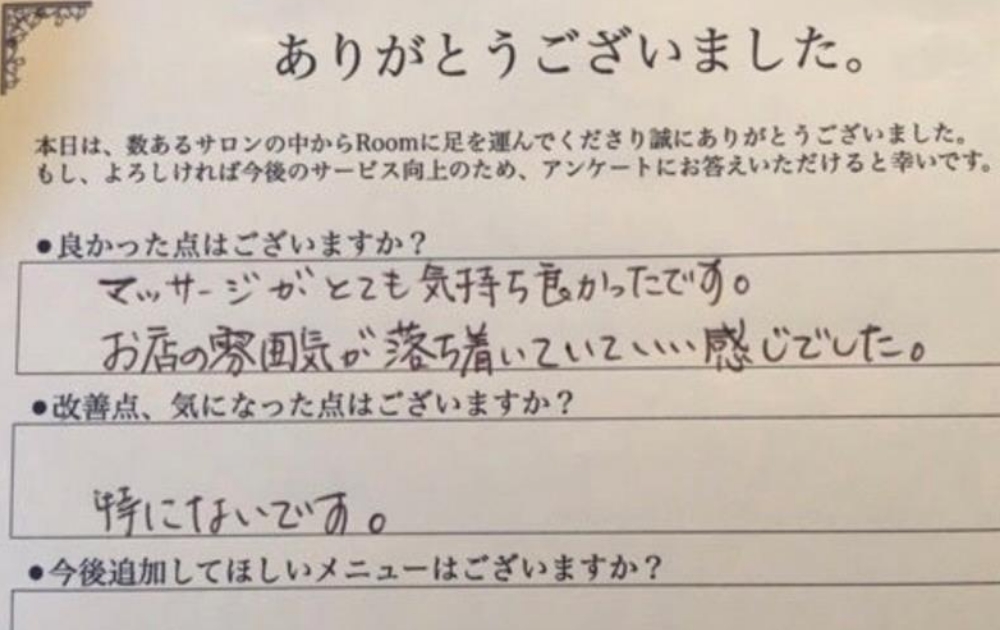 ありがとうございました。
本日は、数あるサロンの中からRoomに足を運んでくださり誠にありがとうございました。
もし、よろしければ今後のサービス向上のため、アンケートにお答えいただけると幸いです。
●良かった点はございますか？
マッサージがとても気持ち良かったです。
お店の雰囲気が落ち着いていていい感じでした。
●改善点、気になった点はございますか？
特にないです。
●今後追加してほしいメニューはございますか？